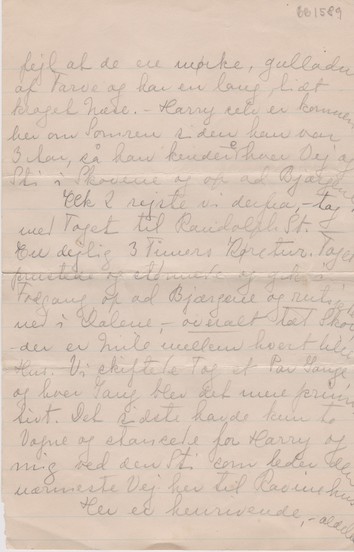 BB1589
fejl at de ere mørke, gulladne
af Farve og har en lang, tæt
kroget Næse. – Harry selv er kommen
her om Somren siden han var
3 Aar, så han kender hver Vej og
Sti i Skovene og op ad Bjærgene
Kl 2 rejste vi derfra, – tog
med Toget til Randolph St. –
En dejlig 3 Timers Køretur. Toget
prustede og stønnede og gik i
Fodgang op ad Bjærgene og rutschede
ned i Dalene, – overalt tæt Skov
– der er Mile mellem hvert lille
Hus. Vi skiftede Tog et Par Gange
og hver Gang blev det mere primi-
tivt. Det sidste havde kun to
Vogne og standsede for Harry og
mig ved den Sti som leder den
nærmeste Vej her til Ravinehus
Her er henrivende, –